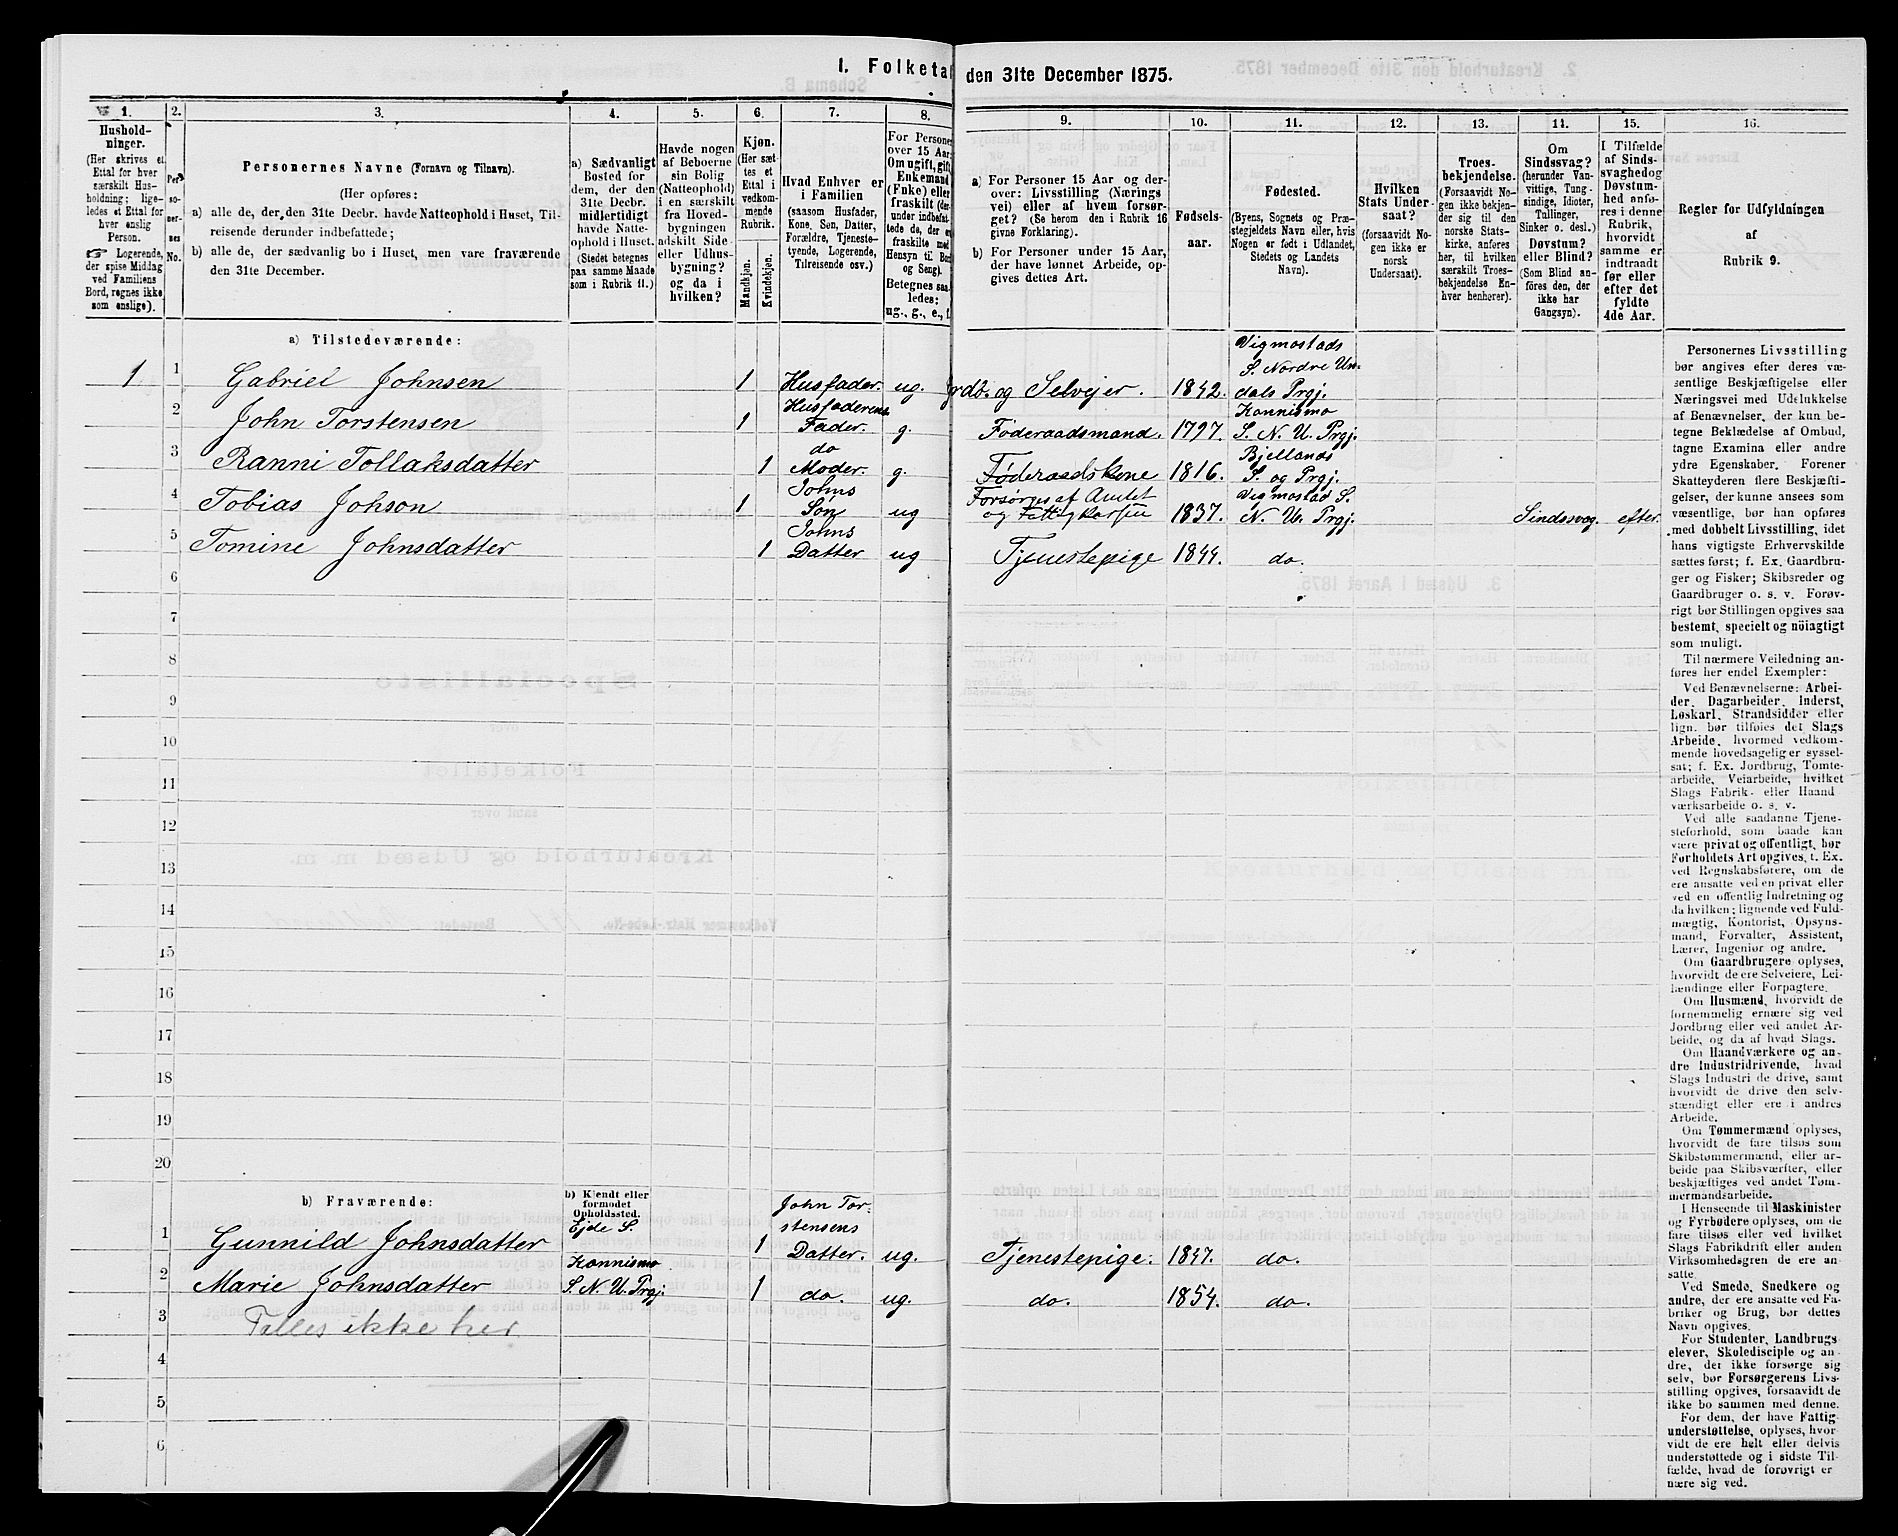 1. Folketal den 31te December 1875.
1. 2. 3. 4. 5. 6. 7. 8. 9. 10. 11. 12. 13. 14. 15. 16.
Hushold-
ninger.
(Her skrives et
Ettal for hver
særskilt Hus-
holdning; lige-
ledes et Ettal for
hver enslig
Person.
☞ Logerende,
der spise Middag
ved Familiens
Bord, regnes ikke
som enslige).
Per-
so-
ner-
nes
No.
Personernes Navne (Fornavn og Tilnavn).
(Her opføres:
a) alle de, der den 31te Decbr. havde Natteophold i Huset, Til-
reisende derunder indbefattede;
b) alle de, der sædvanlig bo i Huset, men vare fraværende
den 31te December.
a) Sædvanligt
Bosted for
dem, der den
31te Decbr.
midlertidigt
havde Natte-
ophold i Huset.
(Stedet betegnes
paa samme Maade
som i Rubrik 11.)
Havde nogen
af Beboerne
sin Bolig
(Natteophold)
i en særskilt
fra Hoved-
bygningen
adskilt Side-
eller Udhus-
bygning?
og da i
hvilken?
Kjøn.
(Her sæt-
tes et
Ettal i
vedkom-
mende
Rubrik.
Mandkjøn.
Kvindekjøn.
Hvad Enhver er
i Familien
(saasom Husfader,
Kone, Søn, Datter,
Forældre, Tjeneste-
tyende, Logerende,
Tilreisende osv.)
For Persone
over 15 Aar:
Om ugift, gift,
Enkemand
(Enke) eller
fraskilt (der-
under indbefat-
tede de, der er
fraskilte med
Hensyn til Bor
og Seng).
Betegnes saa-
ledes:
ug., g., e., f.
a) For Personer 15 Aar og der-
over: Livsstilling (Nærings
vei) eller af hvem forsør-
get? (Se herom den i Rubrik 16
givne Forklaring).
b) For Personer under 15 Aar,
der have lønnet Arbeide, op-
gives dettes Art.
Fødsels-
aar.
Fødested.
(Byens, Sognets og Præ-
stegjeldets Navn eller, hvis
Nogen er født i Udlandet,
Stedets og Landets
Navn).
Hvilken
Stats Under-
saat?
(forsaavidt No-
gen ikke er
norsk
Undersaat).
Troes-
bekjendelse.
(Forsaavidt No-
gen ikke bekjen-
der sig til den
norske Stats-
kirke, anføres
her, til hvilken
særskilt Troes-
bekjendelse En-
hver henhører).
Om
Sindssvag?
(herunder Van-
vittige, Tung-
sindige, Idioter,
Tullinger,
Sinker o. desl.)
Døvstum?
eller Blind?
(Som Blind an-
føres den, der
ikke har
Gangsyn).
I Tilfælde
af Sinds-
svaghed og
Døvstum-
hed anfø-
res i denne
Rubrik,
hvorvidt
samme er
indtraadt
før eller
efter det
fyldte
4de Aar.
Regler for Udfyldningen
af
Rubrik 9.
a) Tilstedeværende:
1 1 Gabriel Johnsen 1 Husfader. ug. Grdb. og Selveier. 1842. Vigmostads S. Nordre Un- dals Prgj.
2 John Torstensen 1 Husfaderens Fader. g. Føderaadsmand. 1797. Konnismo S. N. U. Prgj.
3 Ranni Tollaksdatter 1 do Moder. g. Føderaadskone 1816. Bjellands S. og Prgj.
4 Tobias Johson 1 Johns Søn ug Forsørges af Amtet og Fattigkassen 1837. Vigmostad S. N. U. Prgj. Sindssvag. efter.
5 Tomine Johnsdatter 1 Johns Datter ug Tjenestepige 1844. do.
6
7
8
9
10
11
12
13
14
15
16
17
18
19
20
b) Fraværende:
b) Kjendt eller
formodet
Opholdssted.
1 Gunnild Johnsdatter Ejde S. 1 John Tor- stensens Datter. ug. Tjenestepige. 1847. do.
2 Marie Johnsdatter Konnismo S. N. U. Prgj. 1 do. ug. do. 1854. do.
3 Tælles ikke her
4
5
6
Personernes Livsstilling
bør angives efter deres væ-
sentlige Beskjæftigelse eller
Næringsvei med Udelukkelse
af Benævnelser, der kun be-
tegne Beklædelse af Ombud,
tagne Examina eller andre
ydre Egenskaber. Forener
Skatteyderen flere Beskjæfti-
gelser, der kunne ansees som
væsentlige, bør han opføres
med dobbelt Livsstilling, idet
hans vigtigste Erhvervskilde
sættes først; f. Ex. Gaardbru-
ger og Fisker; Skibsreder og
Gaardbruger o. s. v. Forøv-
rigt bør Stillingen opgives saa
bestemt, specielt og nöiagtigt
som muligt.
Til nærmere Veiledning an-
føres her endel Exempler:
Ved Benævnelserne: Arbei-
der, Dagarbeider, Inderst,
Løskarl, Strandsidder eller
lign. bør tilføies det Slags
Arbeide, hvormed vedkom-
mende hovedsagelig er syssel-
sat; f. Ex. Jordbrug, Tomte-
arbeide, Veiarbeide, hvilket
Slags Fabrik- eller Haand
værksarbeide o. s. v.
Ved alle saadanne Tjene-
steforhold, som baade kan
være privat og offentligt, bør
Forholdets Art opgives, t. Ex.
ved Regnskabsførere, om de
ere ansatte ved en privat eller
ved en offentlig Indretning og
da hvilken; lignende ved Fuld-
mægtig, Kontorist, Opsyns-
mand, Forvalter, Assistent,
Lærer, Ingeniør og andre.
Om Gaardbrugere oplyses,
hvorvidt de ere Selveiere, Lei-
lændinge eller Forpagtere.
Om Husmænd, hvorvidt de
fornemmelig ernære sig ved
Jordbrug eller ved andet Ar-
beide, og da af hvad Slags.
Om Haandværkere og an-
dre Industridrivende, hvad
Slags Industri de drive, samt
hvorvidt de drive den selv-
stændigt eller ere i andres
Arbeide.
Om Tømmermænd oplyses,
hvorvidt de fare tilsøs som
Skibstømmermænd, eller ar-
beide paa Skibsværfter, eller
beskjæftiges ved andet Tøm-
mermandsarbeide.
I Henseende til Maskinister
og Fyrbødere oplyses, om de
fare tilsøs eller ved hvilket
Slags Fabrikdrift eller anden
Virksomhedsgren de ere an-
satte.
Ved Smede, Snedkere og
andre, der ere ansatte ved Fa-
briker og Brug, bør dettes
Navn opgives.
For Studenter, Landbrugs
elever, Skoledisciple og an-
dre, der ikke forsørge sig
selv, bør Forsørgerens Livs-
stilling opgives, forsaavidt de
ikke bo sammen med denne.
For dem, der have Fattig
understøttelse, oplyses, hvor-
vidt de ere helt eller delvis
understøttede og i sidste Til-
fælde, hvad de forøvrigt er
nære sig ved.